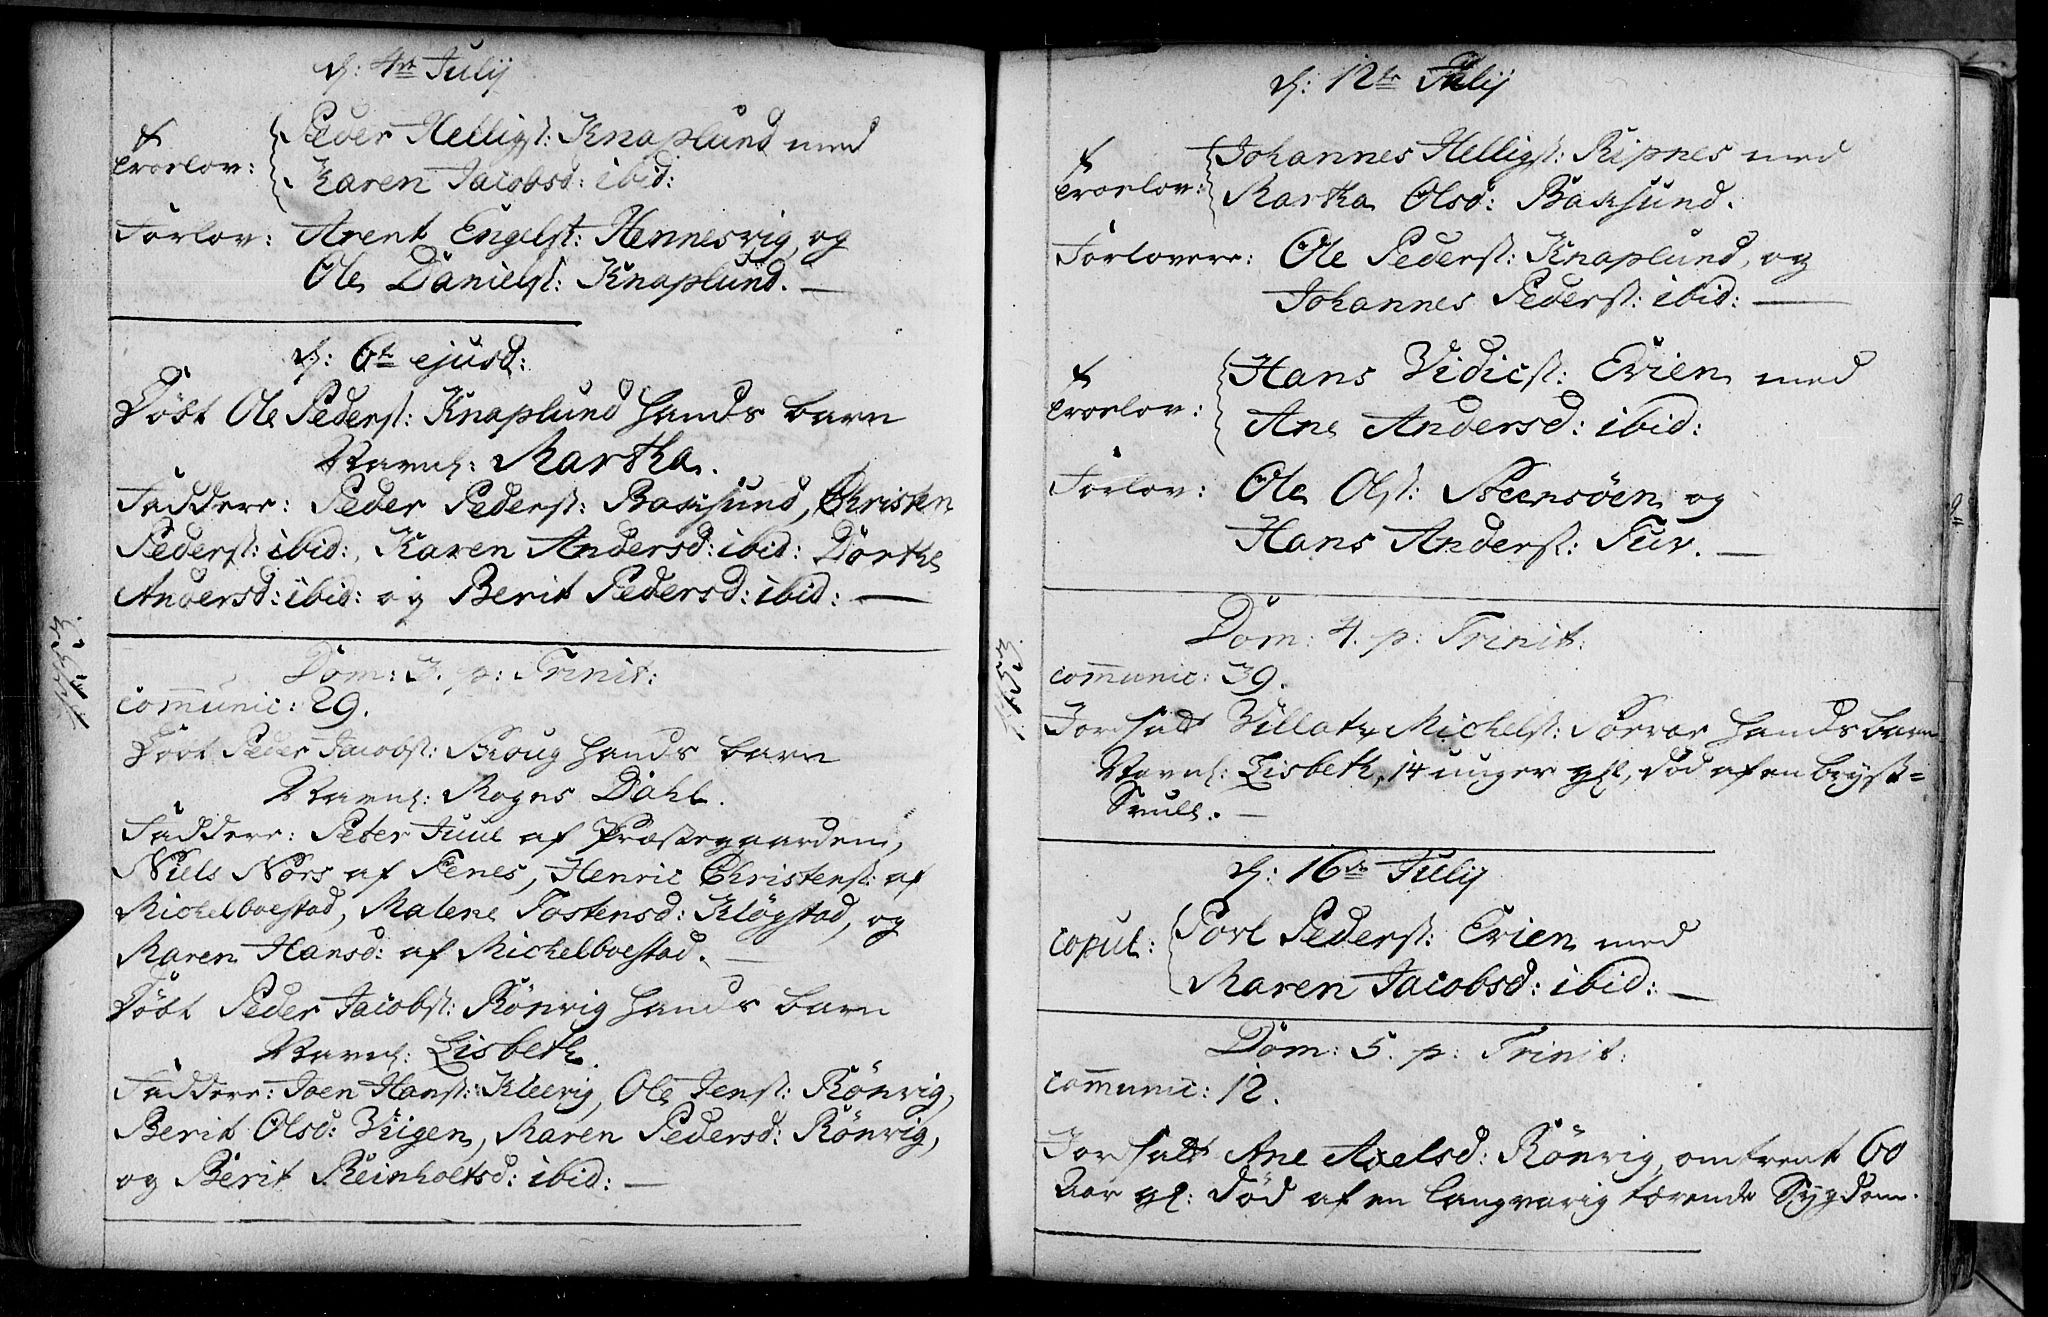 d: 4de Julij
Peder Helligst: Knaplund med
trorlov:
Karen Jacobsd: ibid:
Forlov: Arent Engelst: Hennesvig, og
Ole Danielst: Knaplund.
d: 6te ejusd:
Döbt Ole Pederst: Knaplund hands barn
Navnl: Martha.
Faddere: Peder Pederst: Baksund, Christen
Pederst: ibid:, Karen Andersd: ibid: Dorthe
Andersd: ibid: og Berit Pedersd: ibid:
Dom: 3. p: Trinit:
communic: 29.
Döbt Peder Jacobst: Skoug hands barn
Navnl: Mogns Dahl.
Faddere: Peter Juul af Præstegaarden,
Niels Nors af Fenes, Henric Christenst: af
Michelboestad, Malene Tostensd: Klögstad, og
Maren Hansd: af Michelboestad.
Döbt Peder Jacobst: Rönvig hands barn
Navnl: Lisbeth.
Faddere: Joen Hanst: Kleevig, Ole Jenst: Rönvig,
Berit Olsd: Viigen, Maren Pedersd: Rönvig,
og Berit Reinholtsd: ibid:
1753.
d: 12te Julij
Johannes Helligst: Ripnes med
trorlov:
Martha Olsd: Baksund.
Forlovere: Ole Pederst: Knaplund, og
Johannes Pederst: ibid:
Hans Vidicst: Evien med
trorlov:
Ane Andersd: ibid:
Forlov: Ole Olst: Steensöen og
Hans Anderst: Tuv.
Dom: 4. p: Trinit:
communic: 39.
Jordsatt Villatz Michelst: Sörvær hands barn
Navnl: Lisbeth, 14 uger gl, död af en bryst-
Sniill.
d: 16de Julij
Povl Pederst: Evien med
copul:
Maren Jacobsd: ibid:
Dom: 5. p: Trinit:
communic: 12.
Jordsatt Ane Axelsd: Rönvig, omtrent 60
Aar gl: död af en langvarig tærende Sygdom.